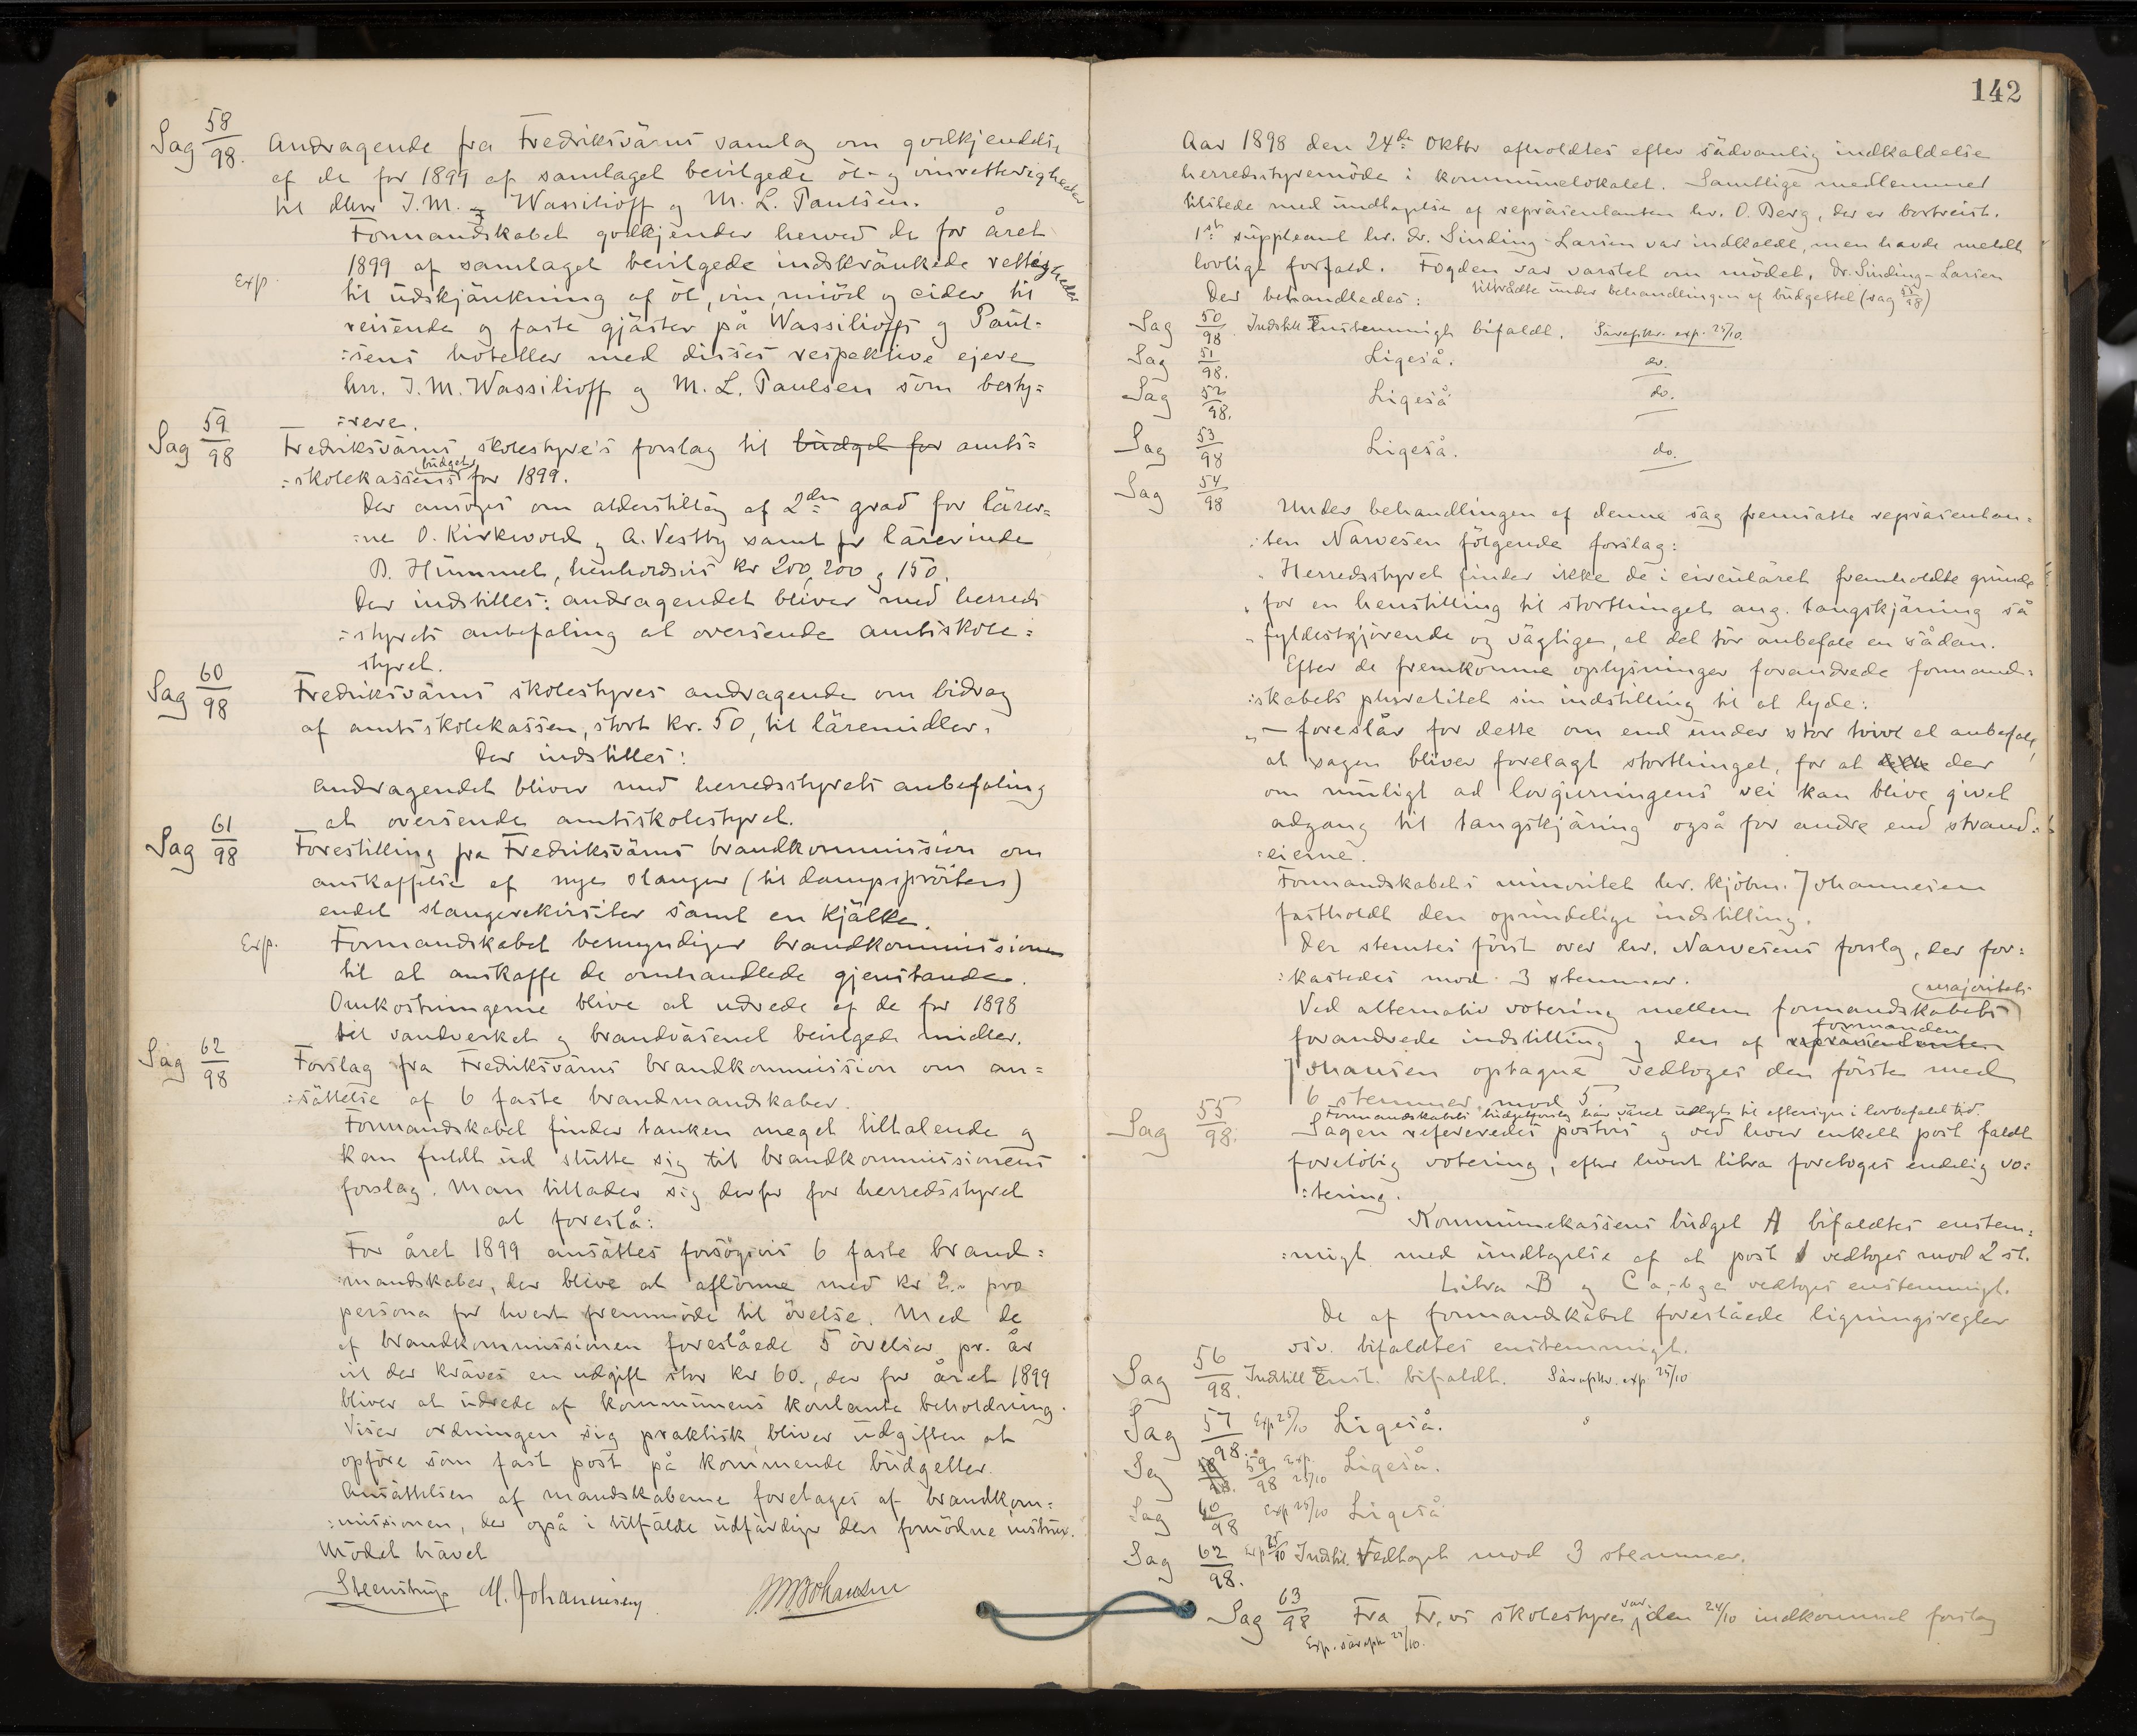 Sag 58/98. Andragende fra Fredriksværns samlag om godkjendelse
af de for 1899 af samlaget bevilgede öl- og vinrettigheder
til dhrr J. M. Wassilioff og M. L. Paulsen.
Formandskabet godkjender herved de for året
Exp. 1899 af samlaget bevilgede indskränkede rettigheder
til udskjänkning af öl, vin, miöd og cider til
reisende og faste gjäster på Wassilioffs og Paul=
:sens hoteller med disses respektive ejere
hrr. J. M. Wassilioff og M. L. Paulsen som besty=
:rere.
Sag 59/98 Fredriksvärns skolestyre's forslag til budget for amts=
:skolekassens budget for 1899.
Der ansöges om alderstillæg af 2den grad for lärer=
:ne O. Kirkevold og A. Vestby samt for lärerinde
B. Hummel, henholdsvis kr 200, 200 og 150.
Der indstilles: andragendet bliver med herreds
:styrets anbefaling at oversende amtsskole=
styret.
Sag 60/98 Fredriksvärns skolestyres andragende om bidrag
af amtsskolekassen, stort kr. 50, til läremidler.
Der indstilles:
Andragendet bliver med herredsstyrets anbefaling
at oversende amtsskolestyret.
Sag 61/98 Forestilling fra Fredriksvärns brandkommission om
anskaffelse af nye slanger (til dampspröiten)
endel slangerekvisiter samt en kjälke.
Exp. Formandskabet bemyndiger brandkommissionen
til at anskaffe de omhandlede gjenstande.
Omkostningerne blive at udrede af de for 1898
til vandverket og brandväsenet bevilgede midler.
Sag 62/98 Forslag fra Fredriksvärns brandkommission om an=
:sättelse af 6 faste brandmandskaber.
Formandskabet finder tanken meget tiltalende og
kan fuldt ud slutte sig til brandkommissionens
forslag. Man tillader sig derfor for herredsstyret
at foreslå:
For året 1899 ansättes forsögsvis 6 faste brand=
:mandskaber, der blive at aflönne med kr 2.- pro
persona for hvert fremmöde til övelse. Med de
af brandkommissionen foreslåede 5 övelser pr. år
vil der kräves en udgift stor kr 60., der for året 1899
bliver at udrede af kommunens kontante beholdning.
Viser ordningen sig praktisk, bliver udgiften at
opföre som fast post på kommende budgetter.
Ansättelsen af mandskaberne foretages af brandkom=
:missionen, der også i tilfälde udfärdiger den fornödne instrux.
Mödet hävet
Steenstrup M. Johannesen
142
Aar 1898 den 24de Oktbr afholdtes efter sädvanlig indkaldelse
herredsstyremöde i kommunelokalet. Samtlige medlemmer
tilstede med undtagelse af repräsentanten hr. O. Berg, der er bortreist.
1ste suppleant hr. dr. Sinding-Larsen var indkaldt, men havde meldt
lovligt forfald. Fogden var varslet om mödet. Dr. Sinding-Larsen
Der behandledes: tiltrådte under behandlingen af budgettet (sag 55/98)
Sag 50/98. Indstill Enstemmigt bifaldt. Särafskr. exp. 25/10.
Sag 51/98. Ligeså. do.
Sag 52/98. Ligeså do.
Sag 53/98 Ligeså. do.
Sag 54/98
Under behandlingen af denne sag fremsatte repräsentan=
:ten Narvesen fölgende forslag:
" Herredsstyret finder ikke de i circuläret fremholdte grunde
" for en henstilling til storthinget ang. tangskjäring så
" fyldestgjörende og vägtige, at det tör anbefale en sådan.
Efter de fremkomne oplysninger forandrede formand=
:skabets pluralitet sin indstilling til at lyde:
" — foreslår for dette om end under stor tvivl at anbefale,
at sagen bliver forelagt storthinget, for at der
om muligt ad lovgivningens vei kan blive givet
adgang til tangskjäring også for andre end strand=
:eierne.
Formandskabets minoritet hr. kjöbm. Johannesen
fastholdt den oprindelige indstilling.
Der stemtes först over hr. Narvesens forslag, der for=
:kastedes mod 3 stemmer.
Ved alternativ votering mellem formandskabets majoritets
forandrede indstilling og den af repräsentanten formanden
Johansen optagne vedtoges den förste med
6 stemmer mod 5.
Formandskabets budgetforslag har väret udlagt til eftersyn i lovbefalet tid.
Sag 55/98. Sagen refereredes postvis og ved hver enkelt post faldt
forelöbig votering, efter hvert litra foretoges endelig vo=
:tering.
Kommunekassens budget A bifaldtes enstem=
:migt med undtagelse af at post 1 vedtoges mod 2 st.
Litra B og C a, b g c vedtoges enstemmigt.
De af formandskabet foreslåede ligningsregler
osv. bifaldtes enstemmigt.
Sag 56/98. Indstill Enst. bifaldt. Särafskr. exp. 25/10
Sag 57/98. Exp 25/10 Ligeså.
Sag 59/98 Exp. 25/10 Ligeså.
Sag 60/98 Exp 25/10 Ligeså
Sag 62/98. Exp 25/10 Indstil. Vedtaget mod 3 stemmer.
Sag 63/98 Fra Fr.vs skolestyre var den 24/10 indkommet forslag
Exp. särafskr 25/10.